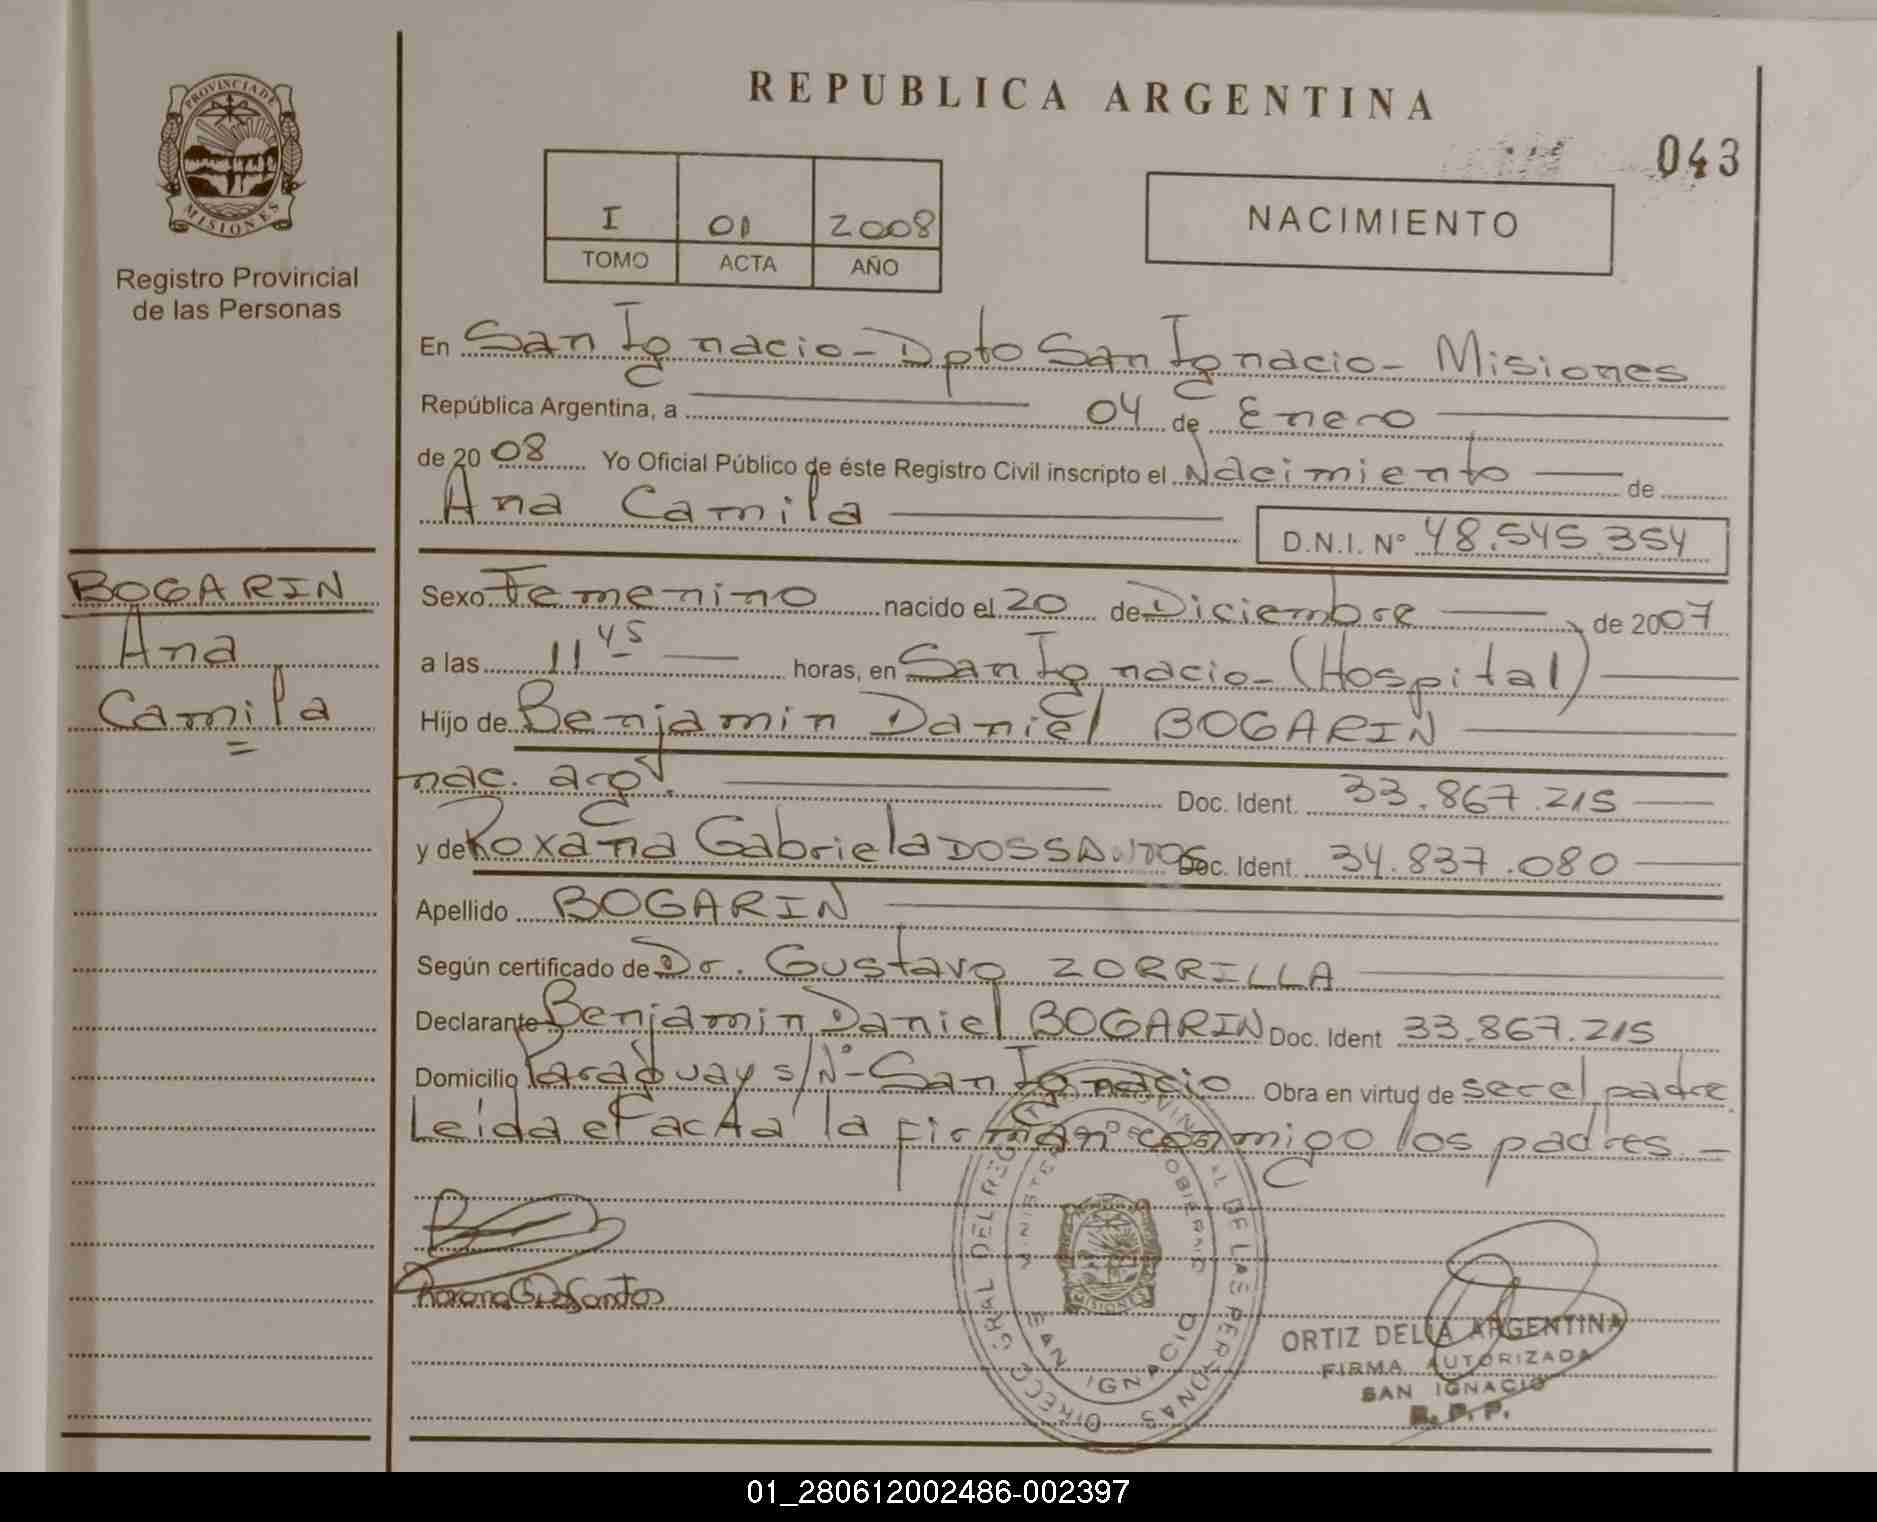 PROVINCIA DE
MISIONES
Registro Provincial
de las Personas
REPUBLICA ARGENTINA
043
I 01 2008
TOMO ACTA AÑO
NACIMIENTO
En San Ignacio - Dpto San Ignacio - Misiones
República Argentina, a 04 de Enero
de 2008 Yo Oficial Público de éste Registro Civil inscripto el Nacimiento de
Ana Camila
D.N.I. N° 48.545.354
BOGARIN
Ana
Camila
Sexo Femenino nacido el 20 de Diciembre de 2007
a las 11 45 horas, en San Ignacio - (Hospital)
Hijo de Benjamin Daniel BOGARIN
nac. arg. Doc. Ident. 33.867.215
y de Roxana Gabriela DOSSANTOS Doc. Ident. 34.837.080
Apellido BOGARIN
Según certificado de Dr. Gustavo ZORRILLA
Declarante Benjamin Daniel BOGARIN Doc. Ident 33.867.215
Domicilio Paraguay s/N° - San Ignacio Obra en virtud de ser el padre.
Leida el acta la firman conmigo los padres. -
Roxana G Dos Santos
DIRECC. GRAL DEL REG PROVINCIAL DE LAS PERSONAS
MINISTER DE GOBIERNO
MISIONES
SAN IGNACIO
ORTIZ DELIA ARGENTINA
FIRMA AUTORIZADA
SAN IGNACIO
R. P. P.
01_280612002486-002397